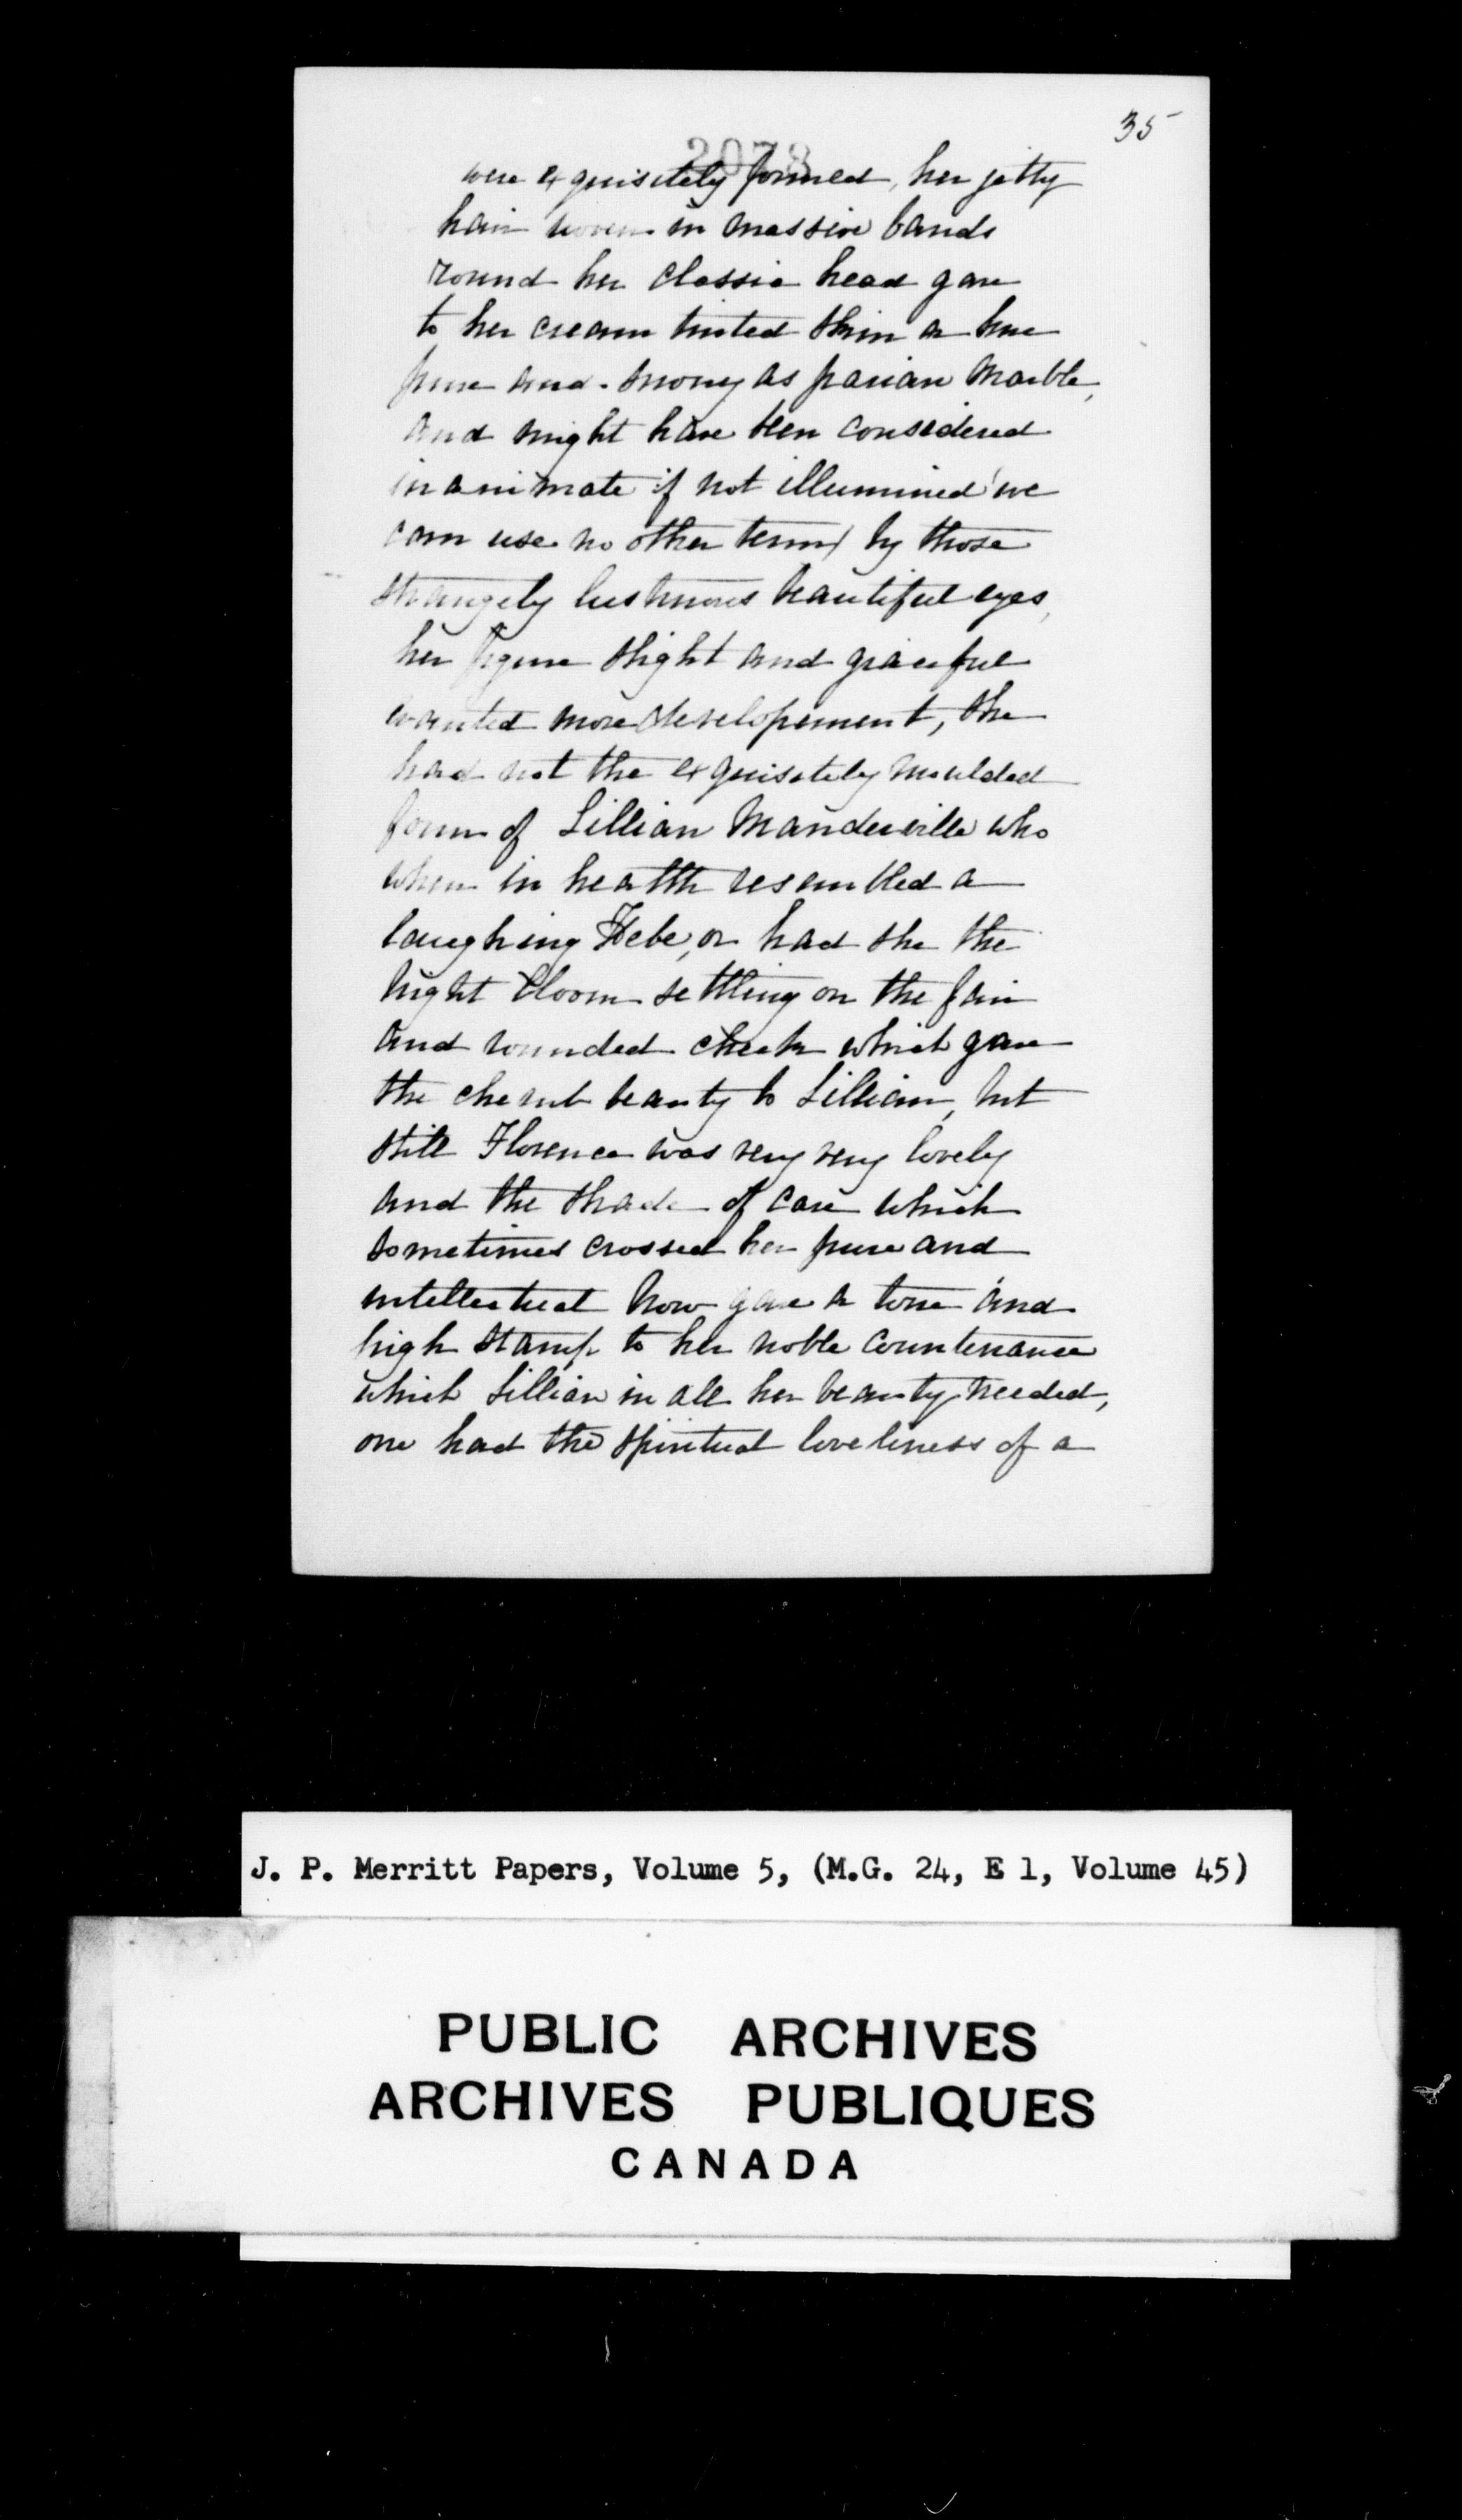 35
2078
were exquisitely formed, her jetty
hair woven in massive bands
round her classic head gave
to her cream tinted skin a hue
pure and snowy as parian marble,
and might have been considered
inanimate if not illumined (we
can use no other term) by those
strangely lustrous beautiful eyes,
her figure slight and graceful
wanted more developement, she
had not the exquisitely moulded
form of Lillian Mandeville who
when in health resembled a
laughing Hebe, or had she the
bright bloom settling on the fair
and rounded cheek which gave
the cherub beauty to Lillian, but
still Florence was very very lovely
and the shade of care which
sometimes crossed her pure and
intellectual brow gave a tone and
high stamp to her noble countenance
which Lillian in all her beauty needed,
one had the spiritual loveliness of a
J. P. Merritt Papers, Volume 5, (M.G. 24, E 1, Volume 45)
PUBLIC ARCHIVES
ARCHIVES PUBLIQUES
CANADA